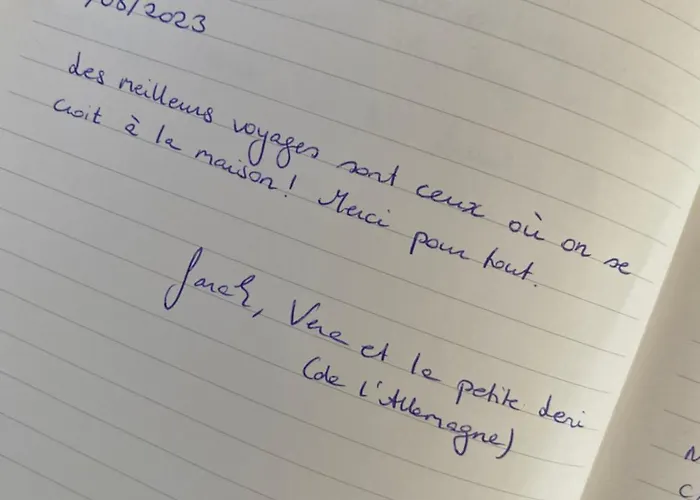 /08/2023
des meilleurs voyages sont ceux où on se
croit à la maison! Merci pour tout.
Sarah, Vera et la petite
(de l'Allemagne)